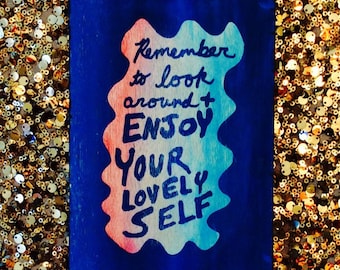 Remember
to look
around +
ENJOY
YOUR
LOVELY
SELF